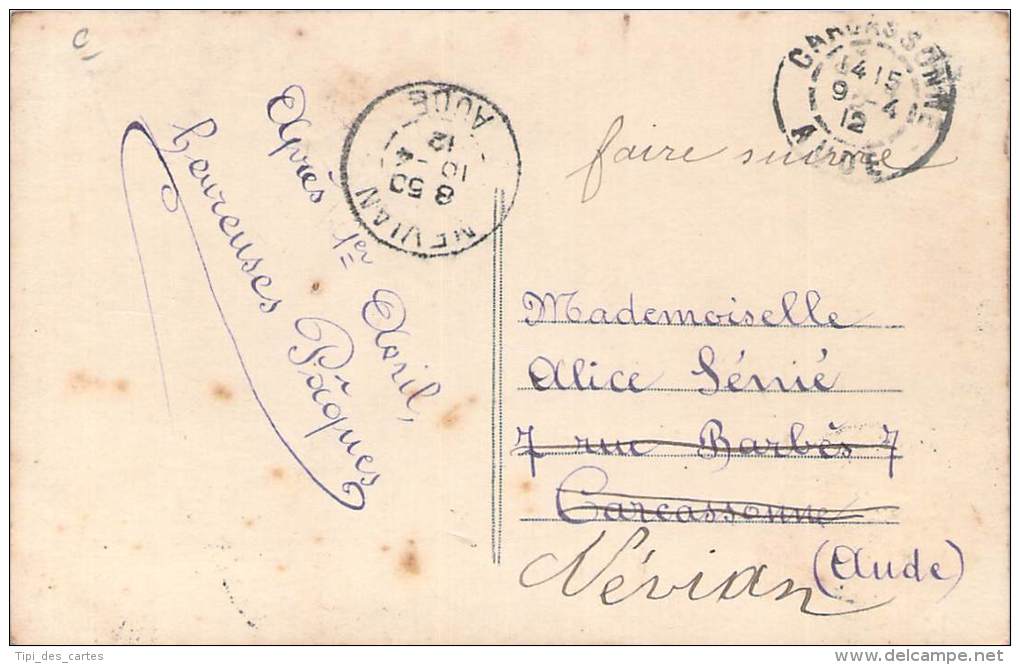 Après 1er Avril,
heureuses Pâques
NEVIAN
8 50
10 - 4
12
AUDE
CARCASSONNE
14 15
9 - 4
12
AUDE
faire suivre
Mademoiselle
Alice Sénié
7 rue Barbès 7
Carcassonne
(Aude)
Névian
Tipi_des_cartes
www.delcampe.net